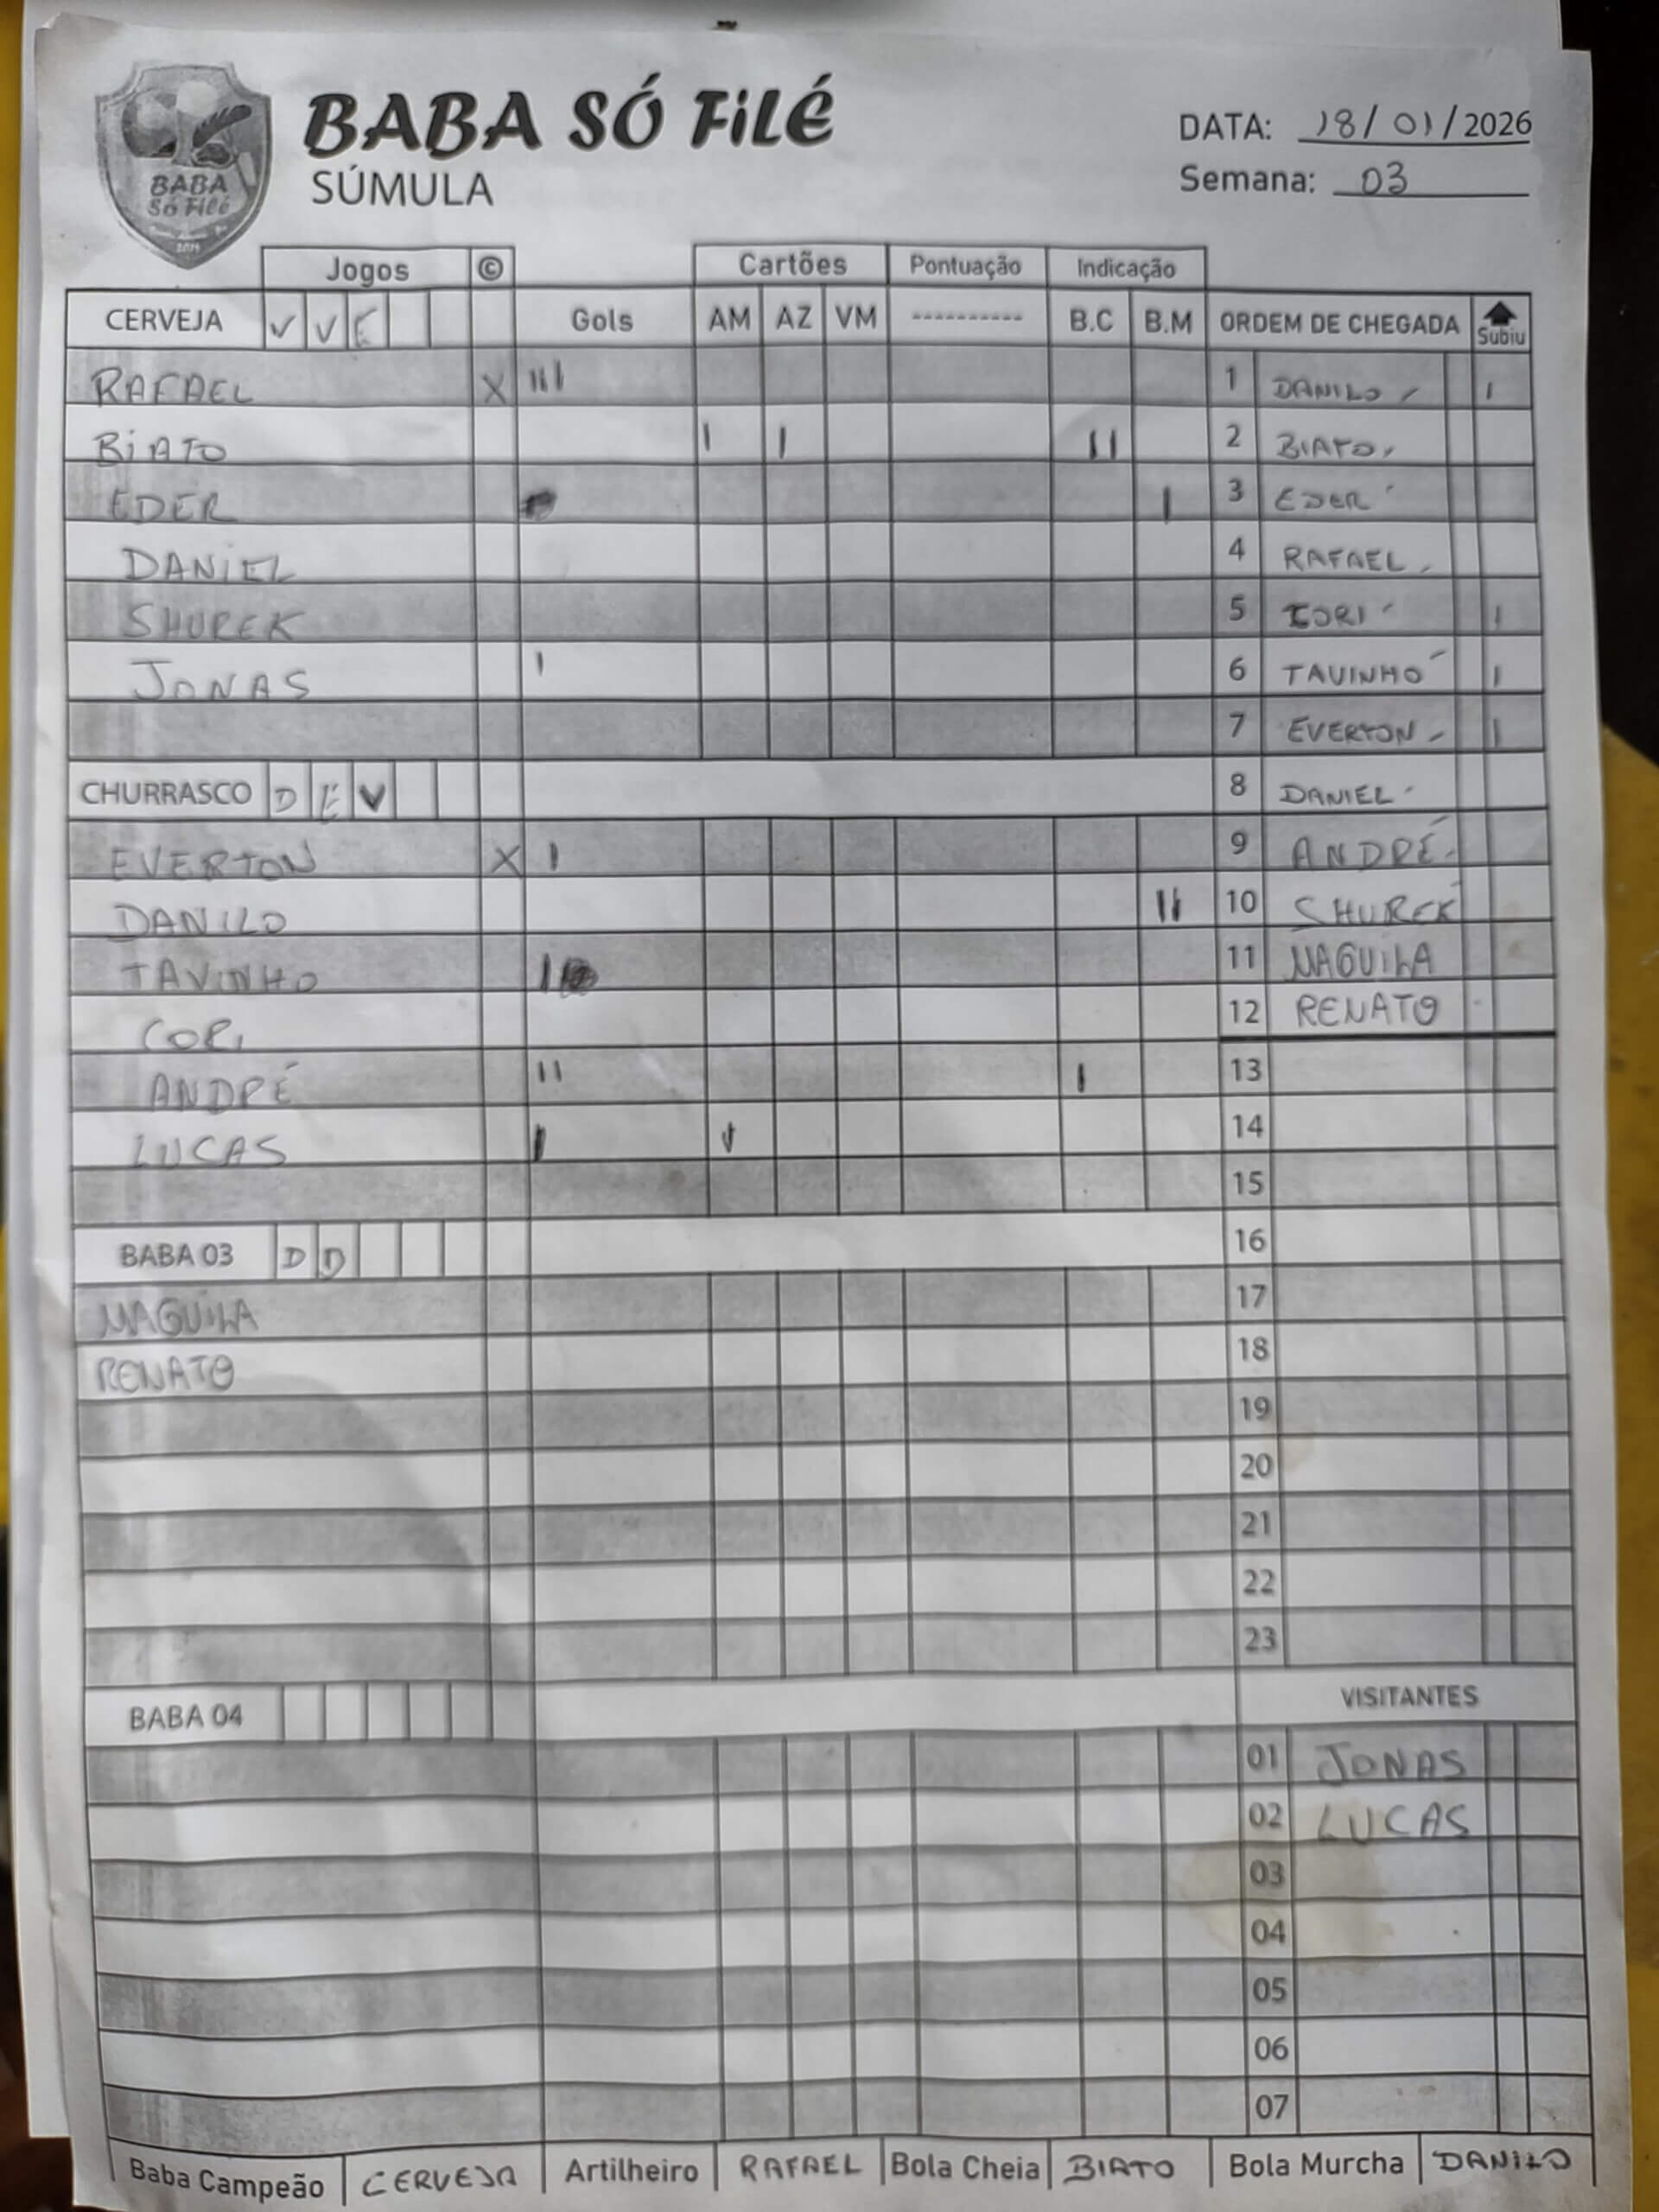 BABA SÓ FiLÉ
SÚMULA
DATA: 18/01/2026
Semana: 03
BABA
Só Filé
2014
Jogos © Cartões Pontuação Indicação
CERVEJA V V E Gols AM AZ VM ---------- B.C B.M ORDEM DE CHEGADA Subiu
RAFAEL X III 1 DANILO I
BIATO I I II 2 BIATO
EDER I 3 EDER
DANIEL 4 RAFAEL
SHUREK 5 CORI I
JONAS I 6 TAVINHO I
7 EVERTON I
CHURRASCO D E V 8 DANIEL
EVERTON X I 9 ANDRÉ
DANILO II 10 SHUREK
TAVINHO I 11 MAGUILA
CORI 12 RENATO
ANDRÉ II I 13
LUCAS I I 14
15
BABA 03 D D 16
MAGUILA 17
RENATO 18
19
20
21
22
23
BABA 04 VISITANTES
01 JONAS
02 LUCAS
03
04
05
06
07
Baba Campeão CERVEJA Artilheiro RAFAEL Bola Cheia BIATO Bola Murcha DANILO